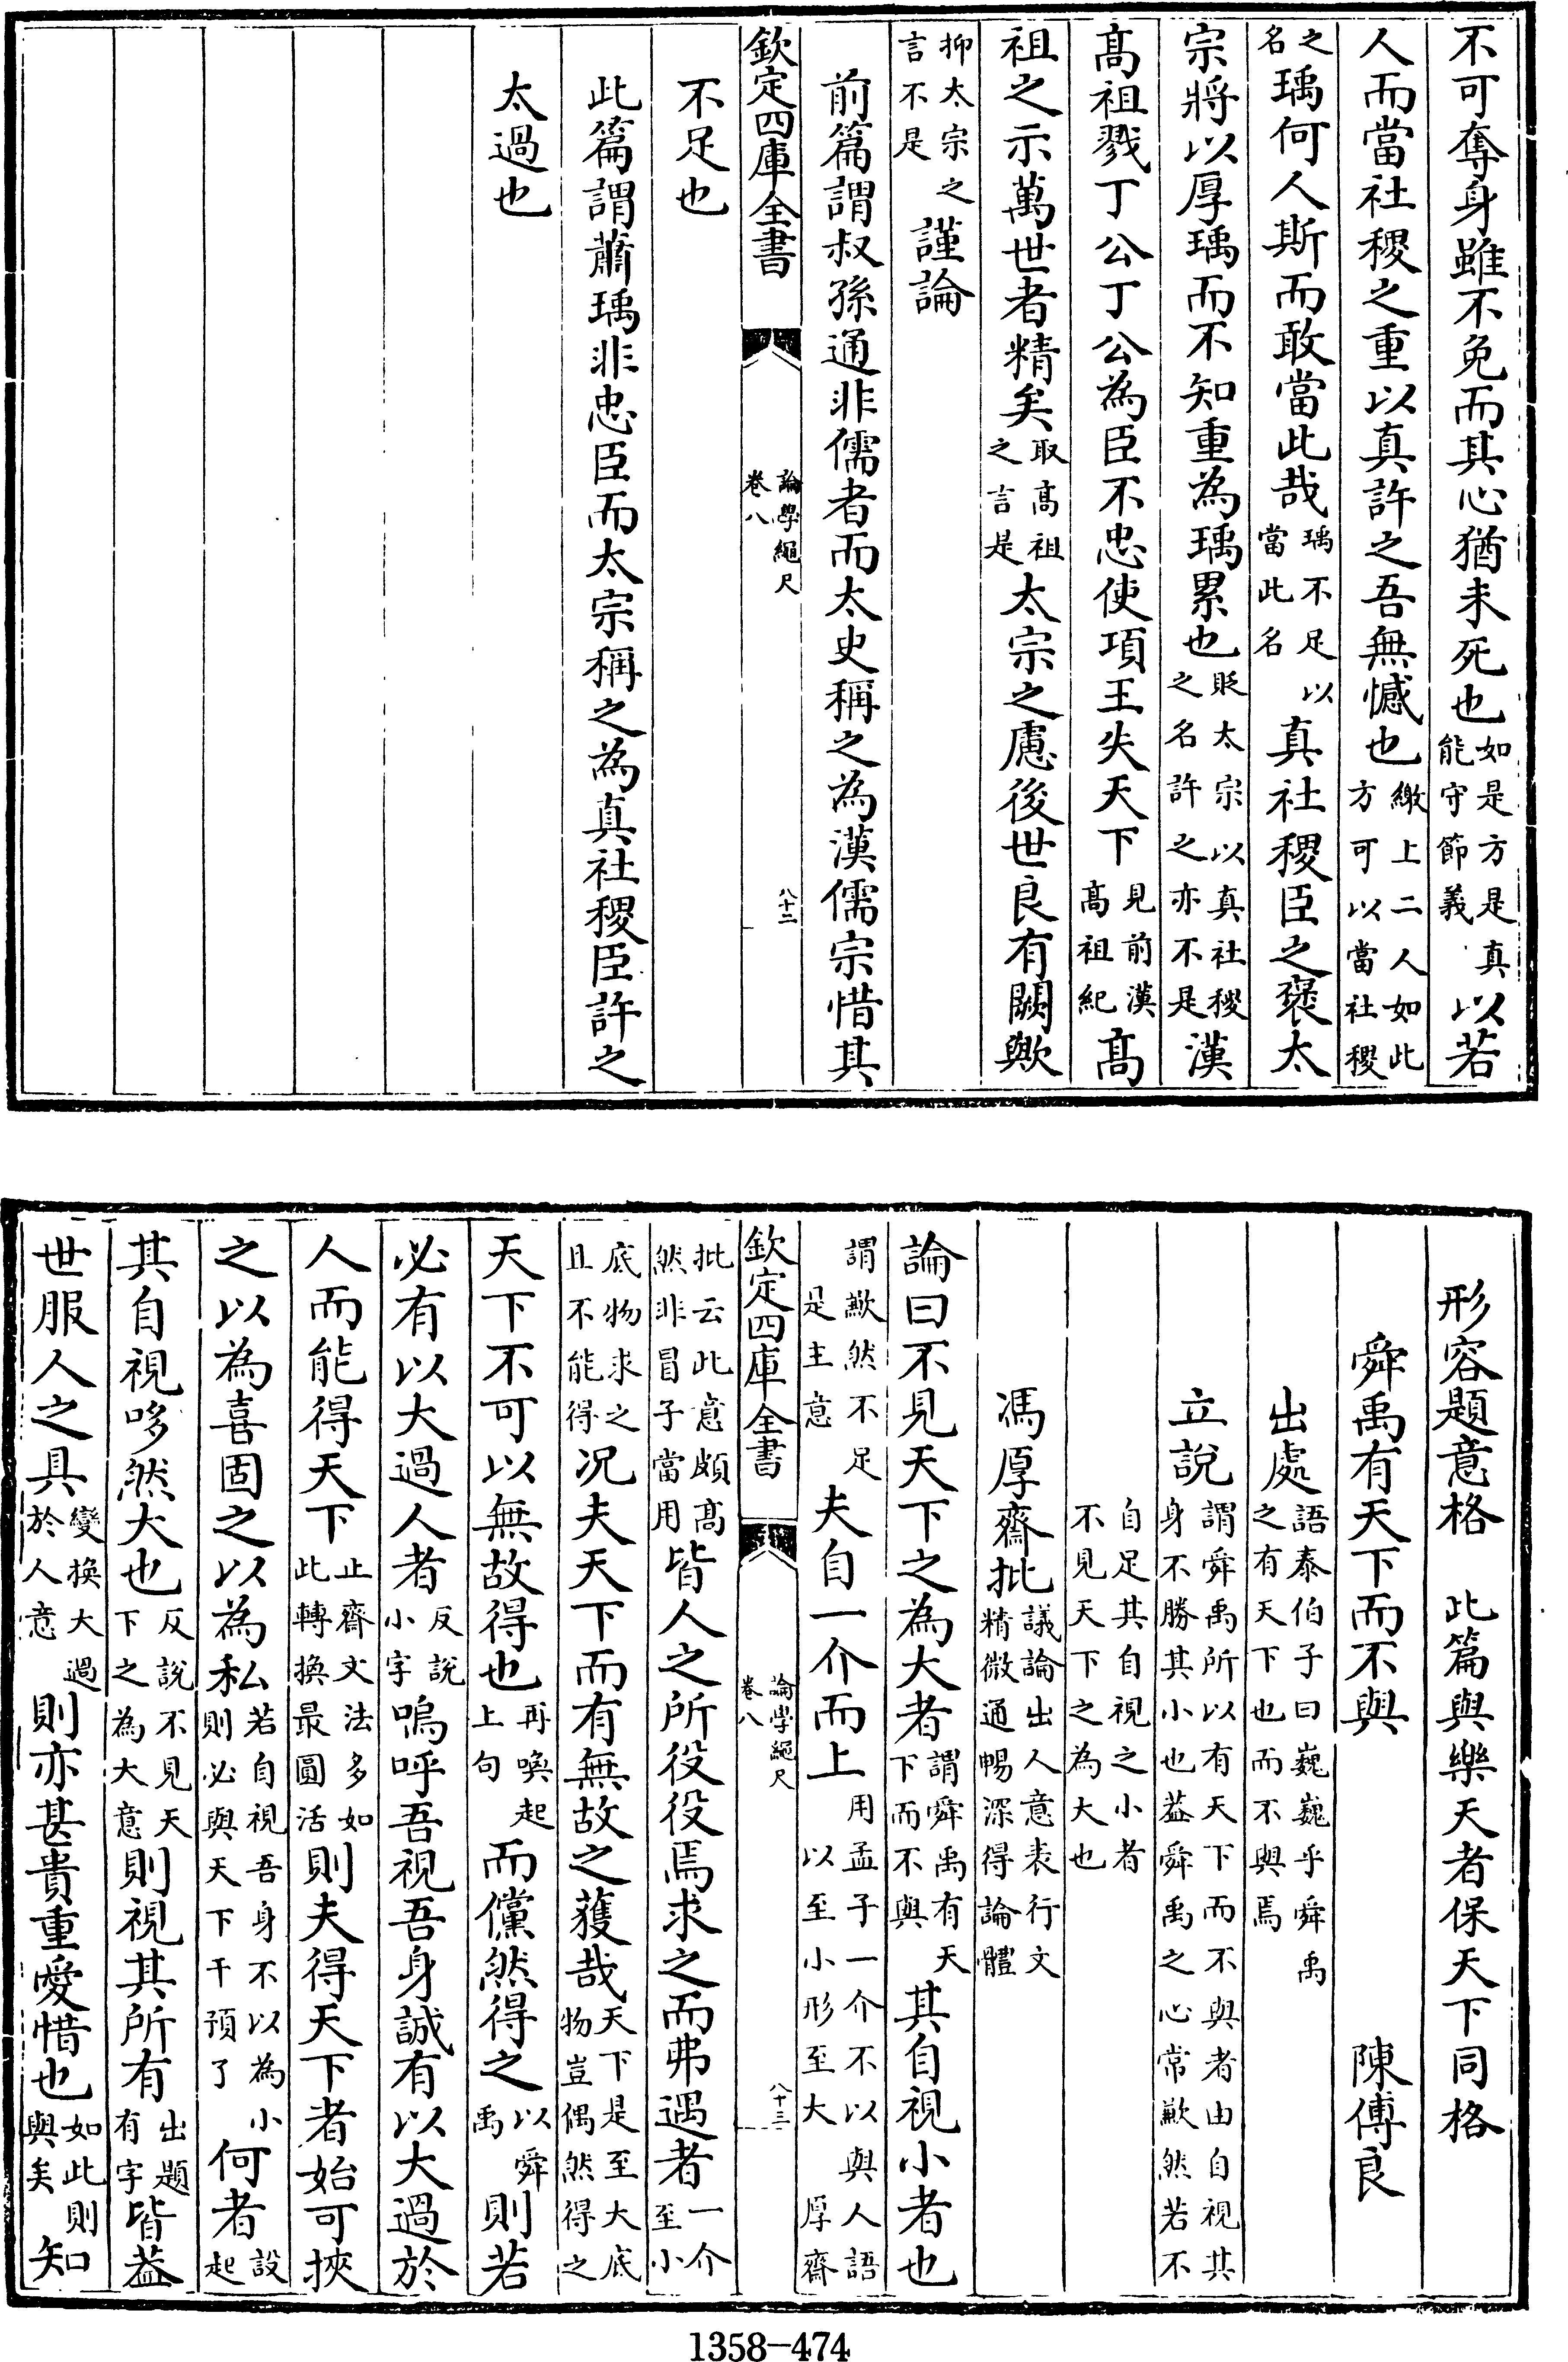 不可奪身雖不免而其心猶未死也如是方是真能守節義以若
人而當社稷之重以真許之吾無憾也繳上二人如此方可以當社稷
之名瑀何人斯而敢當此哉瑀不足以當此名真社稷臣之褒太
宗將以厚瑀而不知重為瑀累也貶太宗以真社稷之名許之亦不是漢
髙祖戮丁公丁公為臣不忠使項王失天下見前漢髙祖紀髙
祖之示萬世者精矣取髙祖之言是太宗之慮後世良有闕歟
抑太宗之言不是謹論
前篇謂叔孫通非儒者而太史稱之為漢儒宗惜其
欽定四庫全書
論學繩尺
卷八
八十二
不足也
此篇謂蕭瑀非忠臣而太宗稱之為真社稷臣許之
太過也
形容題意格 此篇與樂天者保天下同格
舜禹有天下而不與 陳傅良
出處語泰伯子曰巍巍乎舜禹之有天下也而不與焉
立說謂舜禹所以有天下而不與者由自視其身不勝其小也葢舜禹之心常歉然若不
自足其自視之小者不見天下之為大也
馮厚齋批議論出人意表行文精微通暢深得論體
論曰不見天下之為大者謂舜禹有天下而不與其自視小者也
謂歉然不足是主意夫自一介而上用孟子一介不以與人語以至小形至大厚齋
欽定四庫全書
論學繩尺
卷八
八十三
批云此意頗髙然非冒子當用皆人之所役役焉求之而弗遇者一介至小
底物求之且不能得况夫天下而有無故之獲哉天下是至大底物豈偶然得之
天下不可以無故得也再喚起上句而儻然得之以舜禹則若
必有以大過人者反說小字嗚呼吾視吾身誠有以大過於
人而能得天下止齋文法多如此轉換最圓活則夫得天下者始可挾
之以為喜固之以為私若自視吾身不以為小則必與天下干預了何者設起
其自視哆然大也反說不見天下之為大意則視其所有出題有字皆葢
世服人之具變換大過於人意則亦甚貴重愛惜也如此則與矣知
1358-474